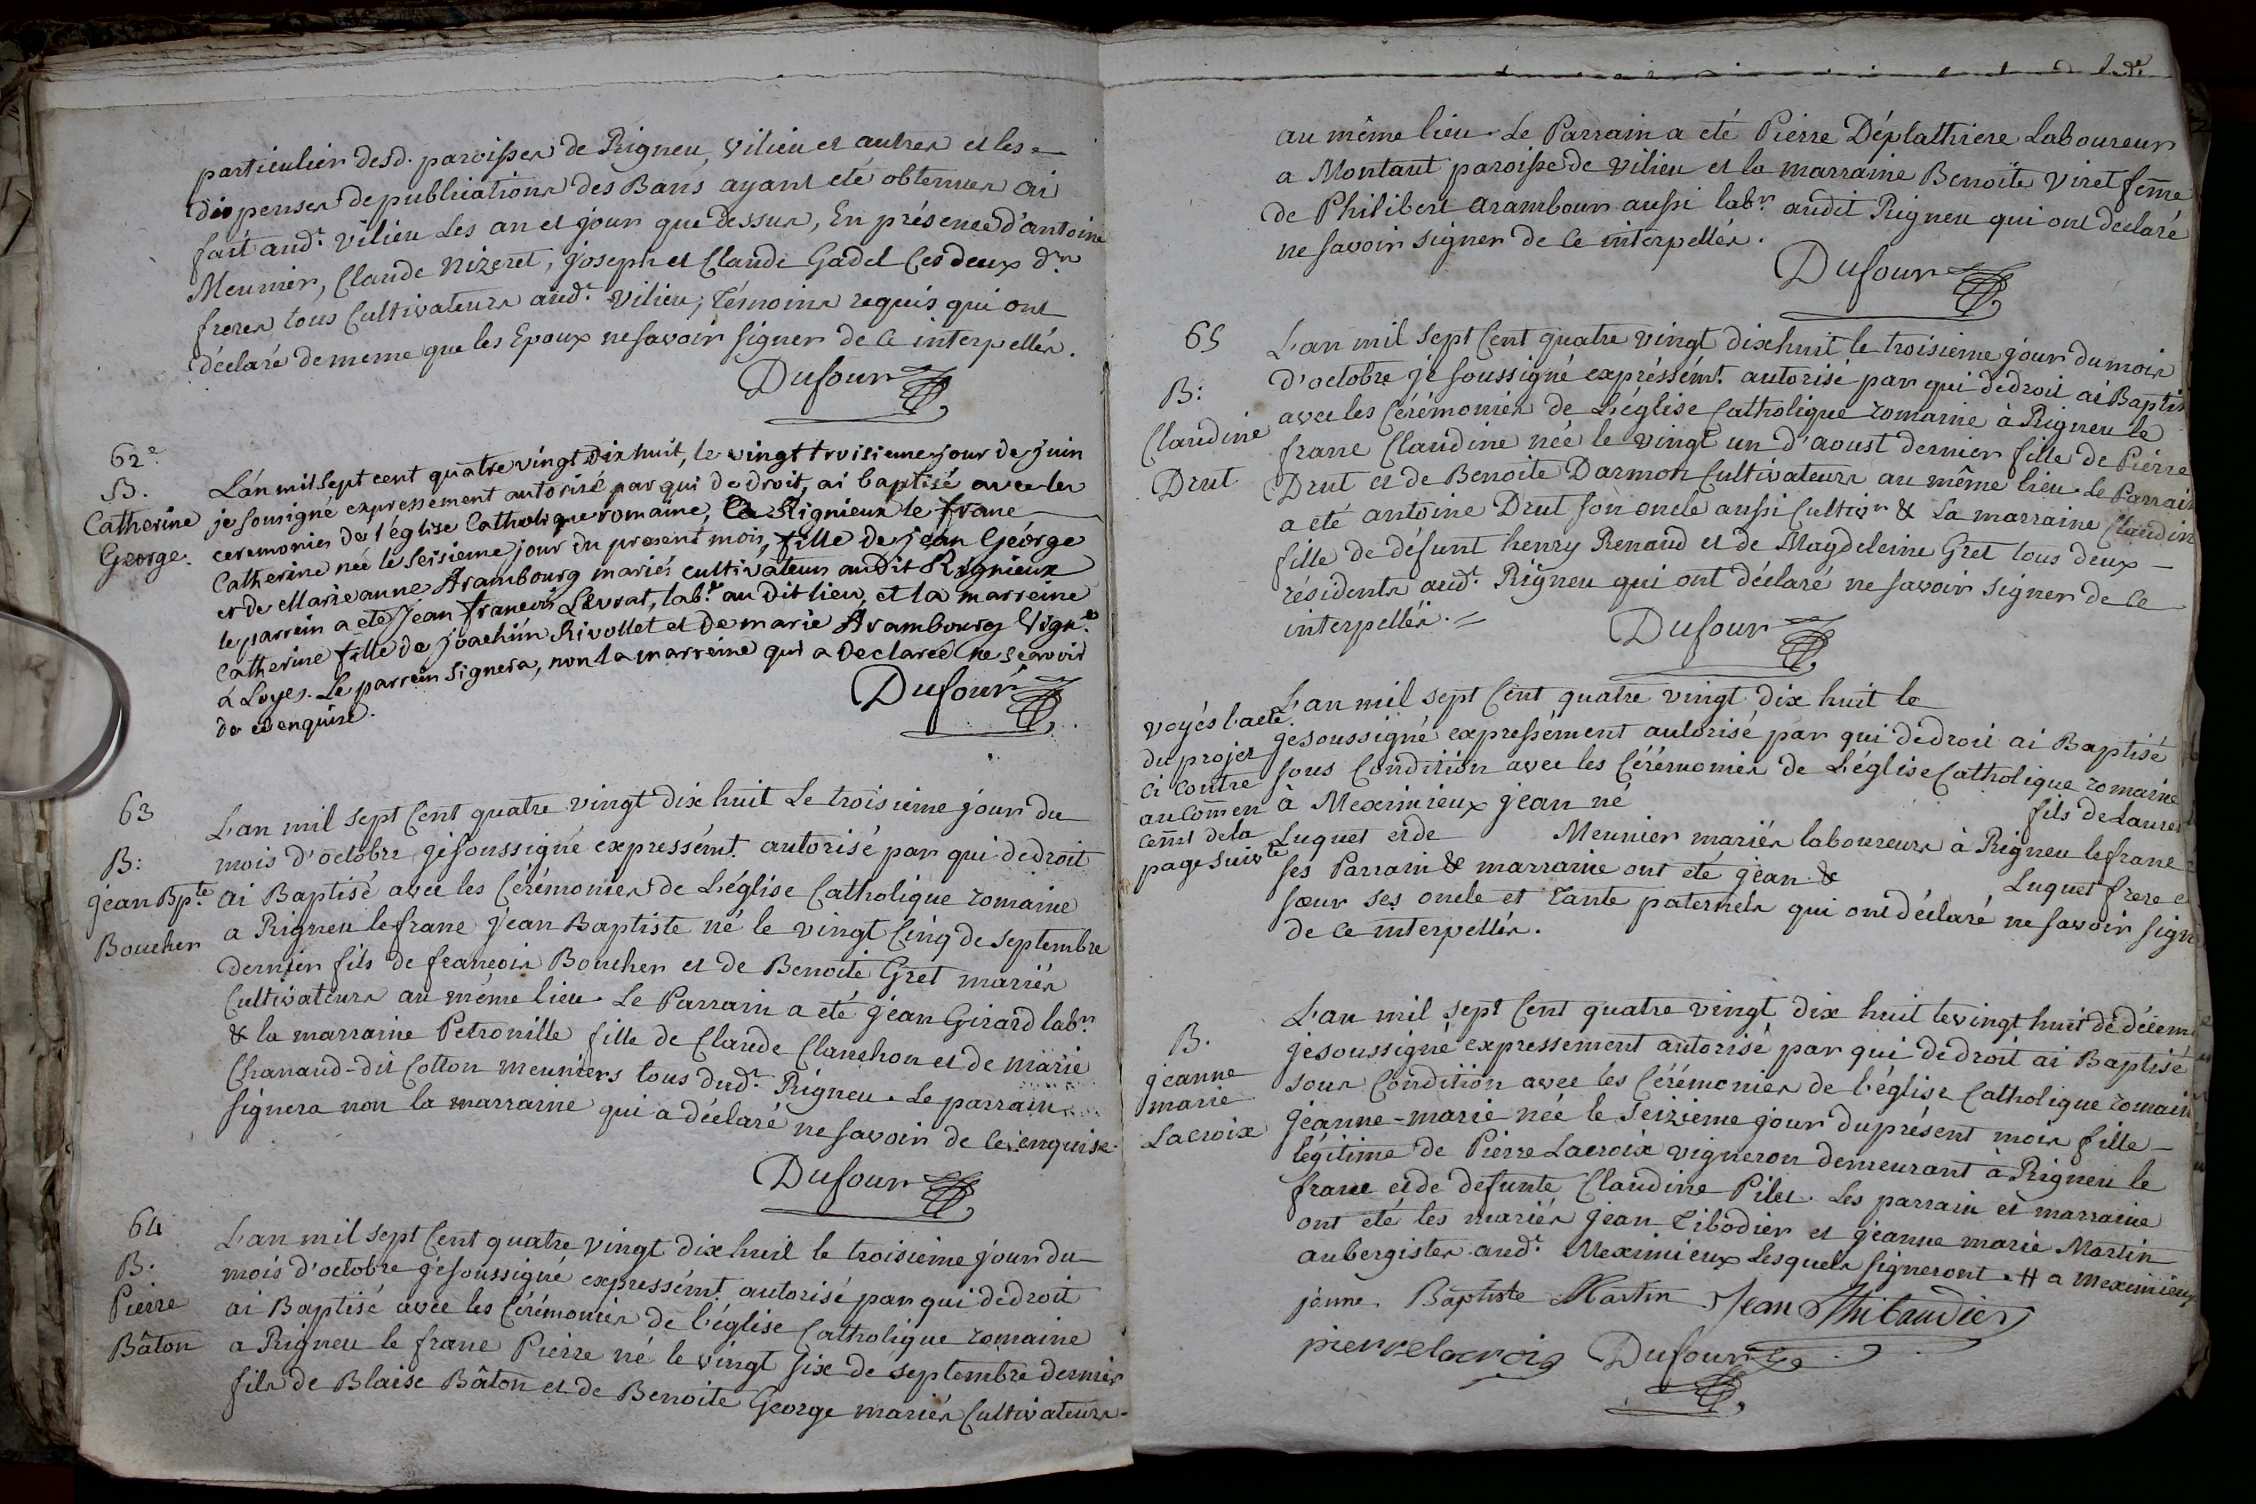 particulier desd. paroisses de Rigneu, Vilieu et autres et les
dispenses de publications des Bans ayant eté obtenues ai
fait audt. Vilieu Les an et jour que dessus, En présence d'antoine
Meunier, Claude Nizeret, joseph et Claude Gadel Ces deux dr
freres tous Cultivateurs audt. Vilieu; Témoins requis qui ont
déclaré de meme que les Epoux ne savoir signer de Ce interpellés.
Dufour
62e
B.
Catherine
George.
L'an mil sept cent quatre vingt Dix huit, le vingt troisieme jour de juin
je sousigné expressement autorisé par qui de droit, ai baptisé avec les
ceremonies de l'église Catholique romaine, a Rignieux le franc
Catherine née le seisieme jour du present mois, fille de jean George
et de Marie anne Arambourg mariés cultivateurs au Dit Rignieux
le parrein a eté Jean francois Levrat, labr. au Dit lieu, et la marreine
Catherine fille de joachim Rivollet et De marie Arambourg Vign.
à Loyes. Le parrein signera, non la marreine qui a Declareé ne scavoir
de ce enquise.
Dufour
63
B:
jean Bpte
Boucher
L'an mil sept Cent quatre vingt dix huit Le troisieme jour du
mois d'octobre je soussigné expressémt. autorisé par qui de droit
ai Baptisé avec les Cérémonies de L'église Catholique romaine
a Rigneu le franc jean Baptiste né le vingt Cinq de septembre
dernier fils de françois Boucher et de Benoite Gret mariés
Cultivateurs au même lieu. Le Parrain a eté jean Girard labr
& la marraine Petronille fille de Claude Clanchon et de marie
Chanaud-dit Cotton meuniers tous dudt. Rigneu. Le parrain
signera non la marraine qui a déclaré ne savoir de Ce enquise.
Dufour
64
B.
Pierre
Bâton
L'an mil sept Cent quatre vingt dix huit le troisieme jour du
mois d'octobre je soussigné expressémt. autorisé par qui de droit
ai Baptisé avec les Cérémonies de l'église Catholique romaine
a Rigneu le franc Pierre né le vingt six de septembre dernier
fils de Blaise Bâton et de Benoite George mariés Cultivateurs
au même lieu. Le Parrain a eté Pierre Déplathiere Laboureur
a Montaut paroisse de Vilieu et la marraine Benoîte Viret feme
de Philibert arambour aussi labr. audit Rigneu qui ont déclaré
ne savoir signer de Ce interpellés.
Dufour
65
B:
Claudine
Drut
L'an mil sept Cent quatre vingt dix huit le troisieme jour du mois
d'octobre je soussigné expréssémt. autorisé par qui de droit ai Baptis
avec les Cérémonies de L'église Catholique romaine à Rigneu le
franc Claudine née le vingt un d'aoust dernier fille de Pierre
Drut et de Benoite Darmon Cultivateurs au même lieu. Le Parrain
a eté antoine Drut son oncle aussi Cultivr & La marraine Claudin
fille de défunt henry Renaud et de Magdeleine Gret tous deux
résidents audt. Rigneu qui ont déclaré ne savoir signer de Ce
interpellés.
Dufour
voyés l'acte
du projet
ci Contre
au Comen
cemt de la
page suivte
L'an mil sept Cent quatre vingt dix huit le
je soussigné expressément autorisé par qui de droit ai Baptisé
sous Condition avec les Cérémonies de L'église Catholique romaine
à Meximieux jean né fils de Laurent
Luquet et de Meunier mariés laboureurs à Rigneu le franc
ses Parrain & marraine ont eté jean & Luquet frere et
sœur ses oncle et tante paternels qui ont déclaré ne savoir sign
de Ce interpellés.
B.
jeanne
marie
Lacroix
L'an mil sept Cent quatre vingt dix huit le vingt huit de décem
je soussigné expressement autorisé par qui de droit ai Baptisé
sous Condition avec les Cérémonies de l'église Catholique romain
jeanne-marie née le seizieme jour du présent mois fille
légitime de Pierre Lacroix vigneron demeurant à Rigneu le
franc et de defunte Claudine Pilet. Les parrain et marraine
ont eté les mariés jean Tibodier et jeanne marie Martin
aubergistes audt. Meximieux Lesquels signeront. # a meximieux
jenne. Baptiste Martin Jean Thibaudier
pierre lacroix Dufour